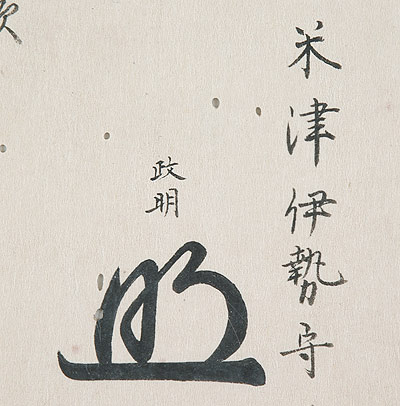 米津伊勢守
政明